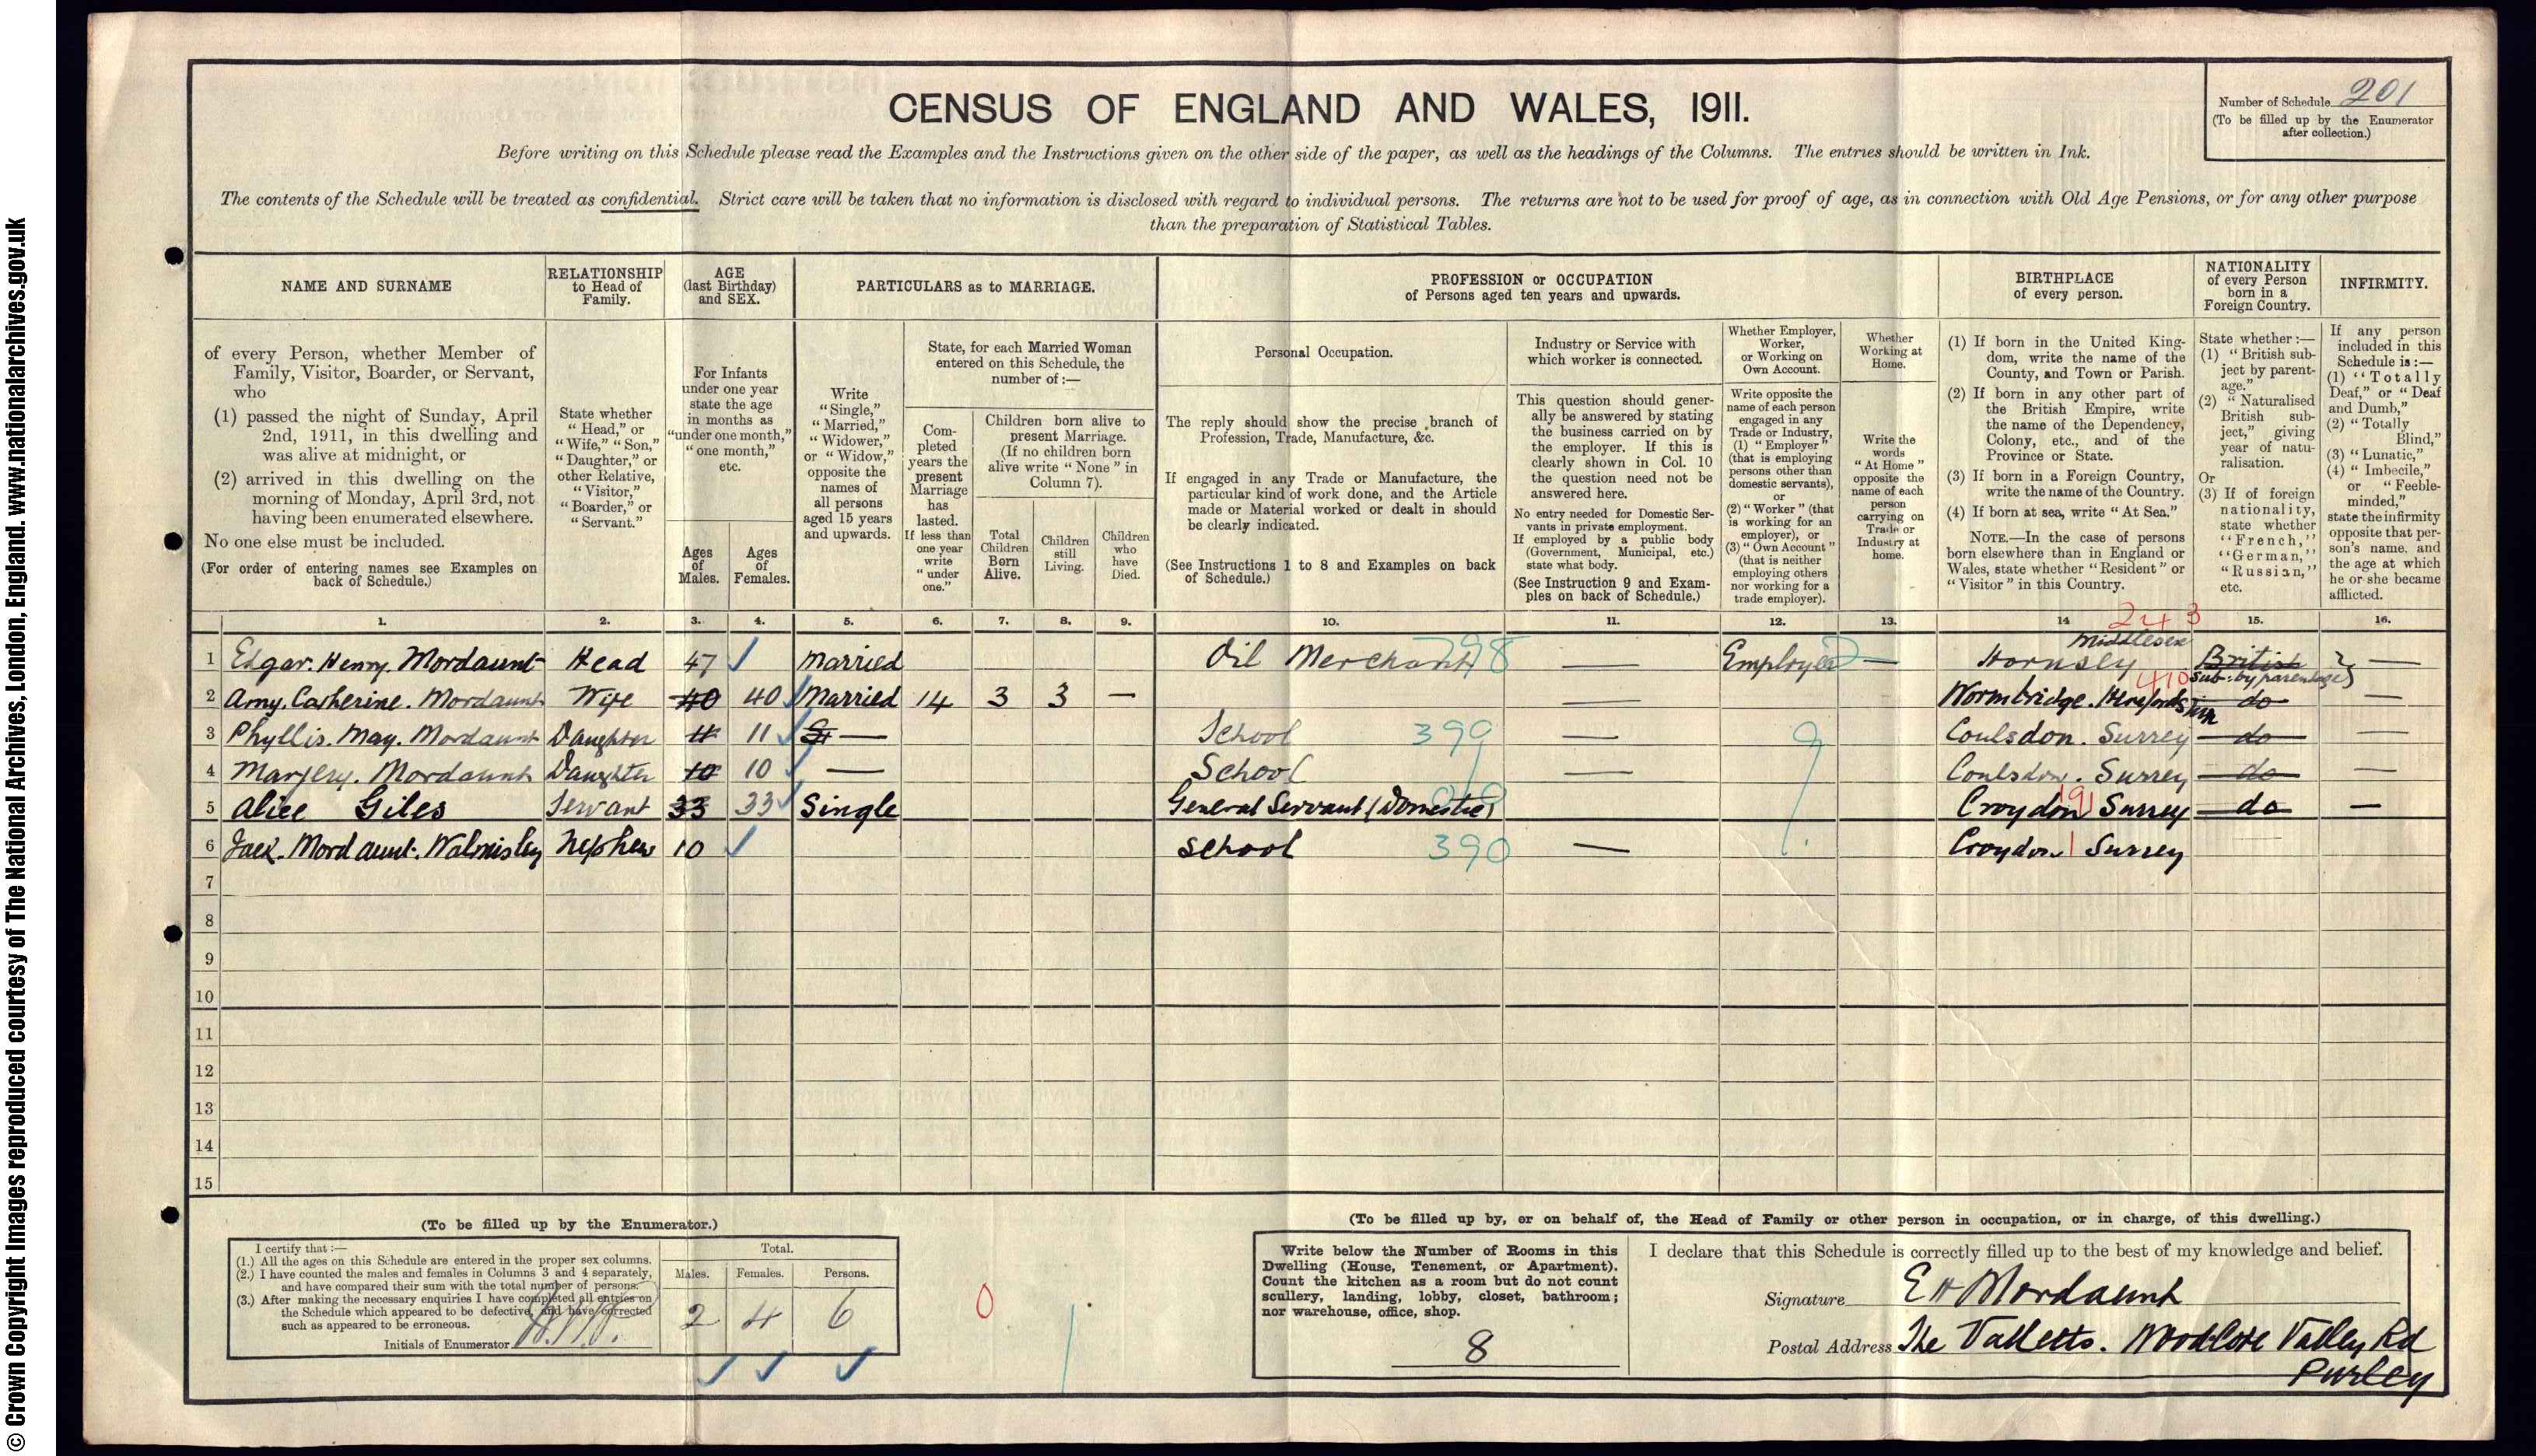 © Crown Copyright Images reproduced courtesy of The National Archives, London, England. www.nationalarchives.gov.uk
CENSUS OF ENGLAND AND WALES, 1911.
Number of Schedule 201
(To be filled up by the Enumerator
after collection.)
Before writing on this Schedule please read the Examples and the Instructions given on the other side of the paper, as well as the headings of the Columns. The entries should be written in Ink.
The contents of the Schedule will be treated as confidential. Strict care will be taken that no information is disclosed with regard to individual persons. The returns are not to be used for proof of age, as in connection with Old Age Pensions, or for any other purpose
than the preparation of Statistical Tables.
NAME AND SURNAME
of every Person, whether Member of
Family, Visitor, Boarder, or Servant,
who
(1) passed the night of Sunday, April
2nd, 1911, in this dwelling and
was alive at midnight, or
(2) arrived in this dwelling on the
morning of Monday, April 3rd, not
having been enumerated elsewhere.
No one else must be included.
(For order of entering names see Examples on
back of Schedule.)
RELATIONSHIP
to Head of
Family.
State whether
"Head," or
"Wife," "Son,"
"Daughter," or
other Relative,
"Visitor,"
"Boarder," or
"Servant."
AGE
(last Birthday)
and SEX.
For Infants
under one year
state the age
in months as
"under one month,"
"one month,"
etc.
Ages
of
Males.
Ages
of
Females.
PARTICULARS as to MARRIAGE.
Write
"Single,"
"Married,"
"Widower,"
or "Widow,"
opposite the
names of
all persons
aged 15 years
and upwards.
State, for each Married Woman
entered on this Schedule, the
number of:—
Com-
pleted
years the
present
Marriage
has
lasted.
If less than
one year
write
"under
one."
Children born alive to
present Marriage.
(If no children born
alive write "None" in
Column 7).
Total
Children
Born
Alive.
Children
still
Living.
Children
who
have
Died.
PROFESSION or OCCUPATION
of Persons aged ten years and upwards.
Personal Occupation.
The reply should show the precise branch of
Profession, Trade, Manufacture, &c.
If engaged in any Trade or Manufacture, the
particular kind of work done, and the Article
made or Material worked or dealt in should
be clearly indicated.
(See Instructions 1 to 8 and Examples on back
of Schedule.)
Industry or Service with
which worker is connected.
This question should gener-
ally be answered by stating
the business carried on by
the employer. If this is
clearly shown in Col. 10
the question need not be
answered here.
No entry needed for Domestic Ser-
vants in private employment.
If employed by a public body
(Government, Municipal, etc.)
state what body.
(See Instruction 9 and Exam-
ples on back of Schedule.)
Whether Employer,
Worker,
or Working on
Own Account.
Write opposite the
name of each person
engaged in any
Trade or Industry,
(1) "Employer"
(that is employing
persons other than
domestic servants),
or
(2) "Worker" (that
is working for an
employer), or
(3) "Own Account"
(that is neither
employing others
nor working for a
trade employer).
Whether
Working at
Home.
Write the
words
"At Home"
opposite the
name of each
person
carrying on
Trade or
Industry at
home.
BIRTHPLACE
of every person.
(1) If born in the United King-
dom, write the name of the
County, and Town or Parish.
(2) If born in any other part of
the British Empire, write
the name of the Dependency,
Colony, etc., and of the
Province or State.
(3) If born in a Foreign Country,
write the name of the Country.
(4) If born at sea, write "At Sea."
NOTE.—In the case of persons
born elsewhere than in England or
Wales, state whether "Resident" or
"Visitor" in this Country.
NATIONALITY
of every Person
born in a
Foreign Country.
State whether:—
(1) "British sub-
ject by parent-
age."
(2) "Naturalised
British sub-
ject," giving
year of natu-
ralisation.
Or
(3) If of foreign
nationality,
state whether
"French,"
"German,"
"Russian,"
etc.
INFIRMITY.
If any person
included in this
Schedule is:—
(1) "Totally
Deaf," or "Deaf
and Dumb,"
(2) "Totally
Blind,"
(3) "Lunatic,"
(4) "Imbecile,"
or "Feeble-
minded,"
state the infirmity
opposite that per-
son's name, and
the age at which
he or she became
afflicted.
1. 2. 3. 4. 5. 6. 7. 8. 9. 10. 11. 12. 13. 14 15. 16.
243
1 Edgar. Henry. Mordaunt Head 47 Married Oil Merchant 798 — Employer — Hornsey Middlesex British sub: by parentage —
2 Amy. Catherine. Mordaunt Wife 40 40 Married 14 3 3 — — Wormbridge. Herefordshire 410 do —
3 Phyllis. May. Mordaunt Daughter 11 11 — School 399 — 9 Coulsdon. Surrey do —
4 Marjery. Mordaunt Daughter 10 10 — School — Coulsdon. Surrey do —
5 Alice Giles Servant 33 33 Single General Servant (Domestic) Croydon 191 Surrey do —
6 Jack. Mordaunt. Walmisley Nephew 10 School 390 — Croydon Surrey
7
8
9
10
11
12
13
14
15
(To be filled up by the Enumerator.)
I certify that:—
(1.) All the ages on this Schedule are entered in the proper sex columns.
(2.) I have counted the males and females in Columns 3 and 4 separately,
and have compared their sum with the total number of persons.
(3.) After making the necessary enquiries I have completed all entries on
the Schedule which appeared to be defective, and have corrected
such as appeared to be erroneous.
Initials of Enumerator
Total.
Males. Females. Persons.
2 4 6
0
(To be filled up by, or on behalf of, the Head of Family or other person in occupation, or in charge, of this dwelling.)
Write below the Number of Rooms in this
Dwelling (House, Tenement, or Apartment).
Count the kitchen as a room but do not count
scullery, landing, lobby, closet, bathroom;
nor warehouse, office, shop.
8
I declare that this Schedule is correctly filled up to the best of my knowledge and belief.
Signature E H Mordaunt
Postal Address The Valletts. Woodcote Valley Rd
Purley